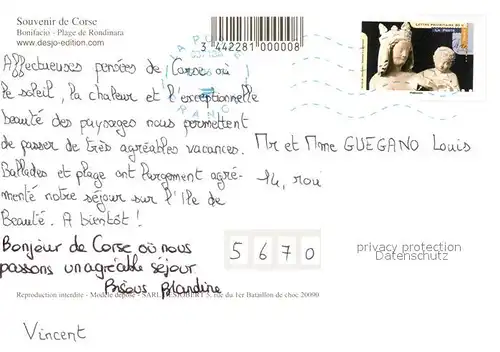 Souvenir de Corse
Bonifacio - Plage de Rondinara
www.desjo-edition.com
3 442281 000008
LETTRE PRIORITAIRE 20 g
LA POSTE
Affectueuses pensées de Corse où
le soleil, la chaleur et l'exceptionnelle
beauté des paysages nous permettent
de passer de très agréables vacances.
Ballades et plage ont largement agré-
menté notre séjour sur l'île de
Beauté. A bientôt !
Bonjour de Corse où nous
passons un agréable séjour
Blandine
Vincent
Mr et Mme GUEGANO Louis
14, roui
5670
privacy protection
Datenschutz
Reproduction interdite - Modèle déposé - SARL DESJOBERT 5, rue du 1er Bataillon de choc 20090